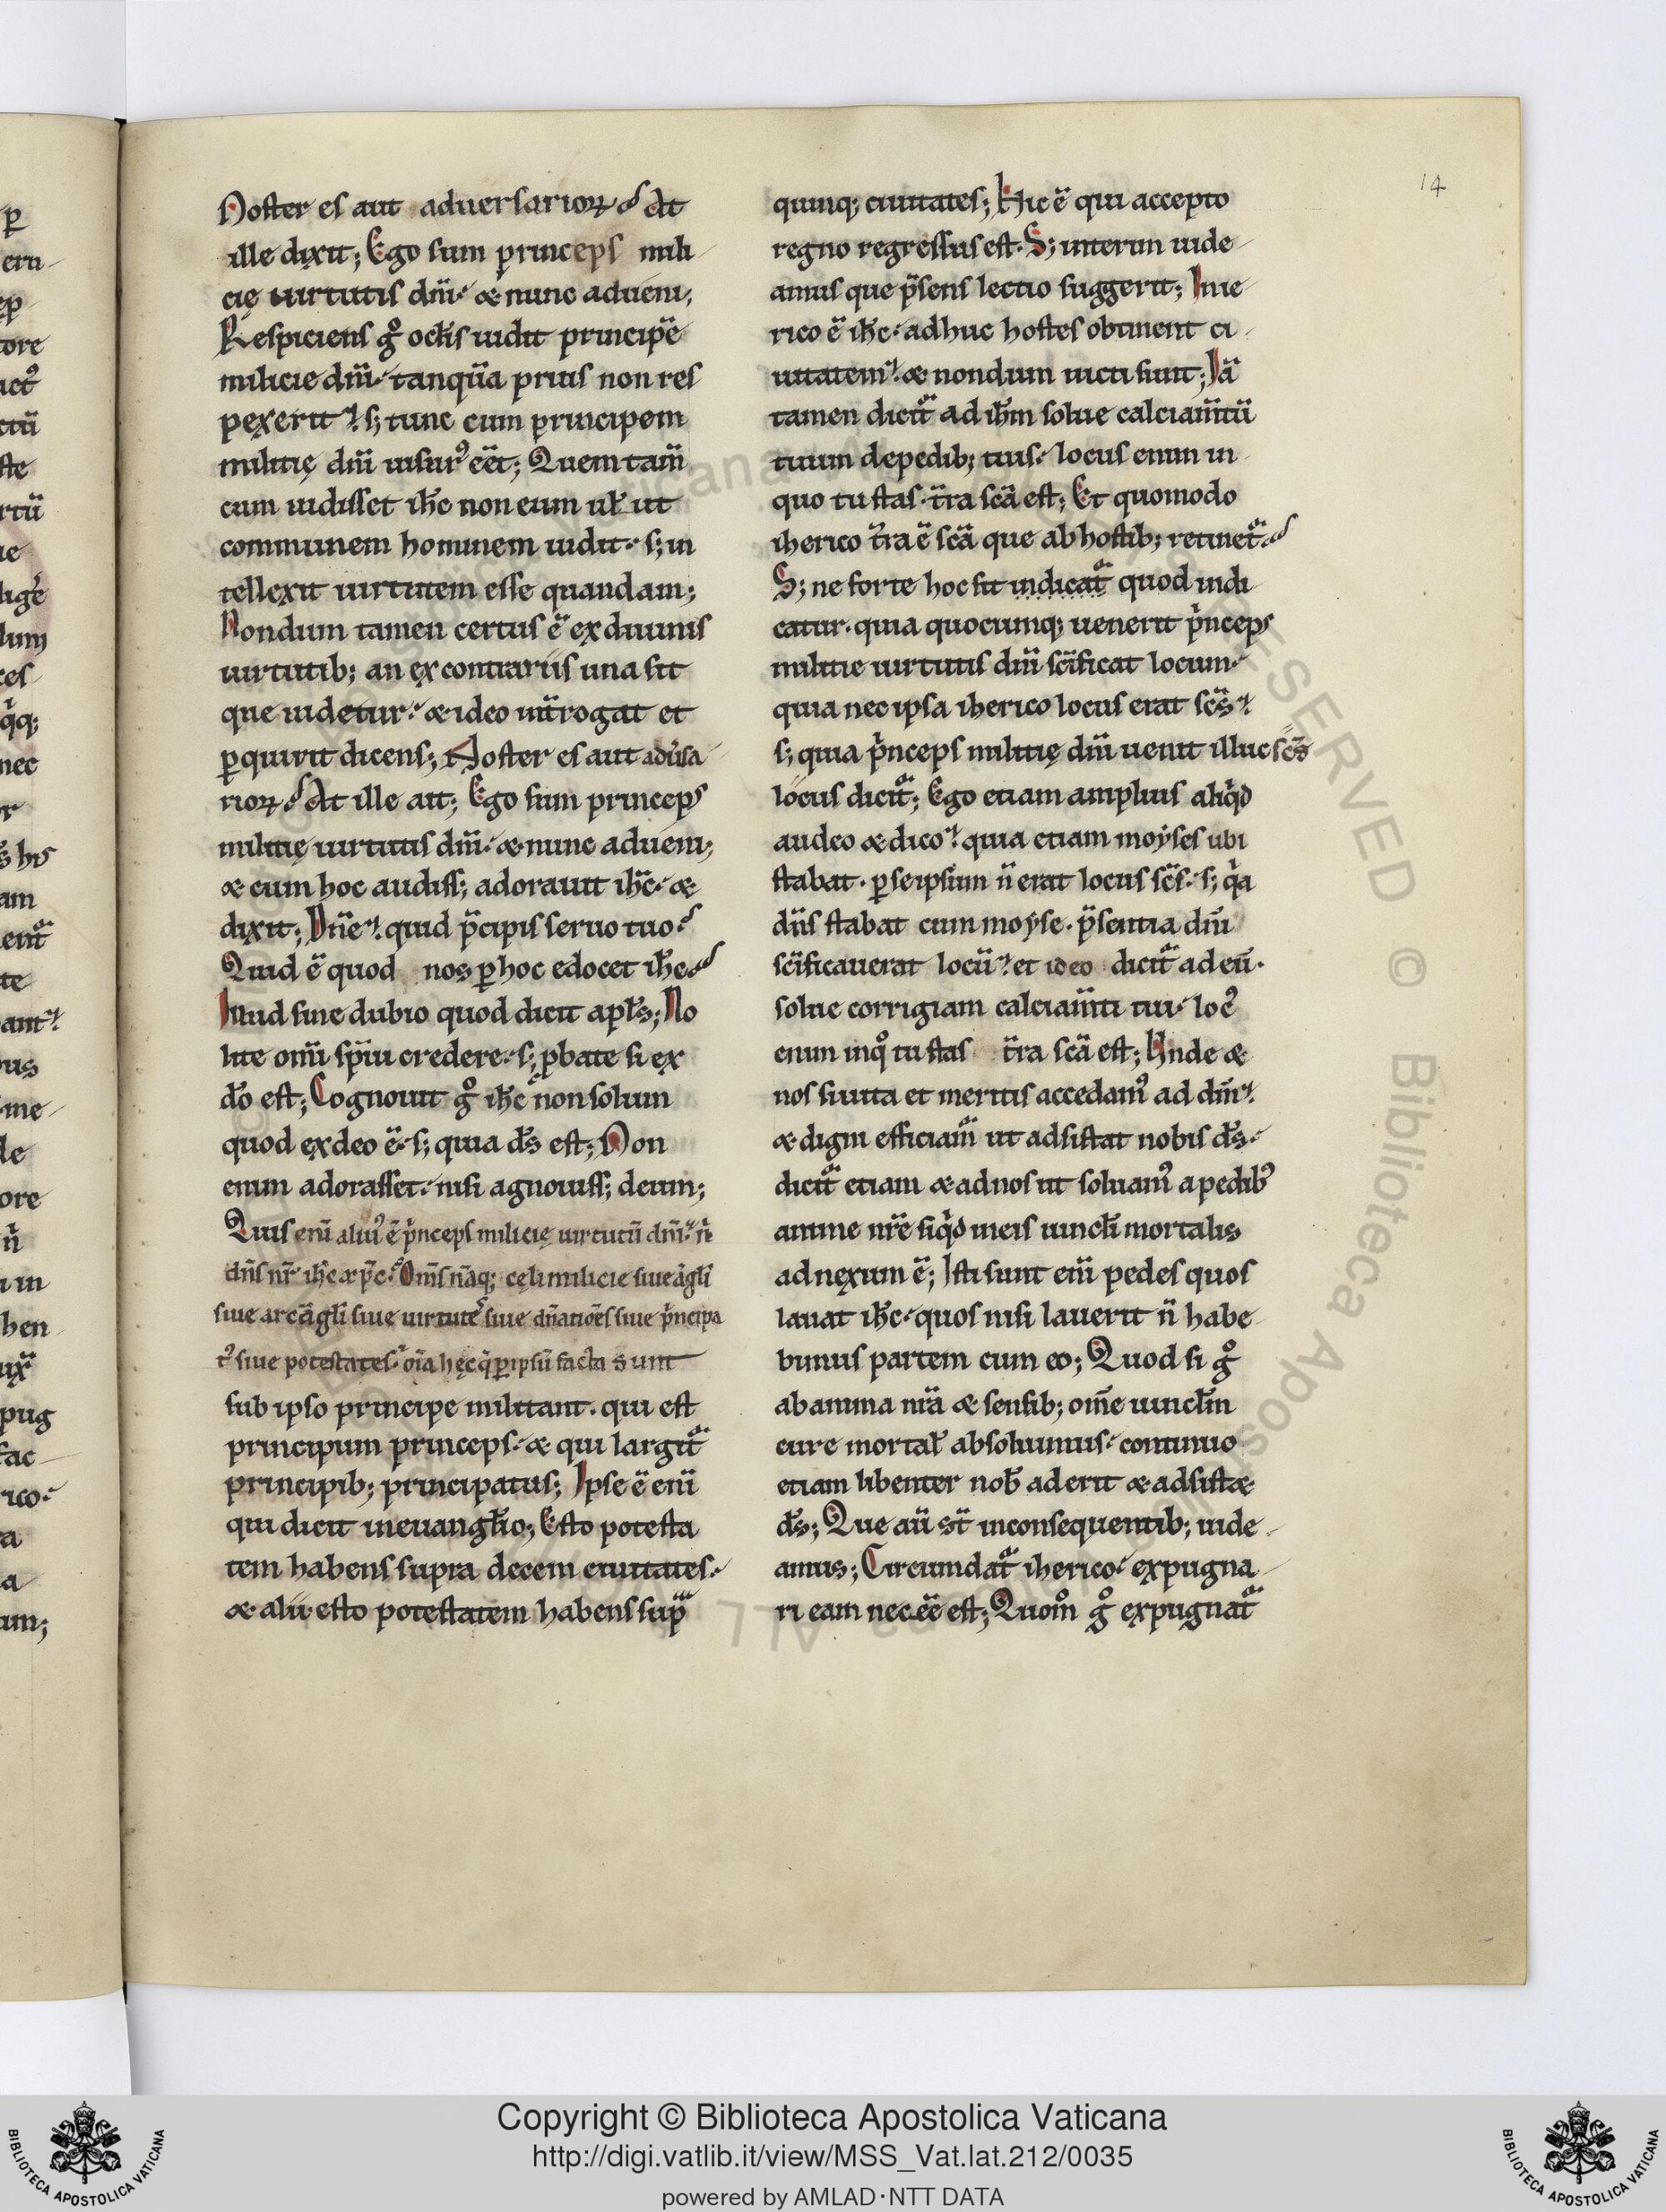 14
Noster es aut adversarioꝝ? At
ille dixit; Ego sum princeps mili
cię uirtutis dnī. & nunc adueni,
Respiciens gͦ ocłis uidit principē
milicie dnī. tanquā prius non res
pexerit. s; tunc cum principem
militię dnī uisurꝰ eēt; Quem tam̄
cum uidisset ihc̄ non eum uł ut
communem hominem uidit. s; in
tellexit uirtutem esse quandam;
Nondum tamen certus ē ex diuinis
uirtutib; an ex contrariis una sit
que uidetur. & ideo int̄rogat et
ꝑquirit dicens; Noster es aut aduˀsa
rioꝝ? At ille ait; Ego sum princeps
militię uirtutis dnī. & nunc adueni;
& cum hoc audiss; adorauit ihc̄. &
dixit; Dn̄e. quid p̄cipis seruo tuo?
Quid ē quod nos ꝑ hoc edocet ihc̄?
Illud sine dubio quod dicit apłs; No
lite omī spīu credere. s; ꝓbate si ex
dō est; Cognouit gͦ ihc̄ non solum
quod ex deo ē. s; quia ds̄ est; Non
enim adorasset. nisi agnouiss; deum;
Quis enī aliuꝰ ē pͥnceps milicię uirtutū dnī. nͥ
dn̄s nr̄ ihc̄ & xp̄c. Oms̄ nāq; cęli milicie siue āgłi
siue arcāgłi siue uirtutēs siue dn̄ationēs siue pͥncipa
tꝰ siue potestates. oīa hęc q̄ ꝑ ipsū facta sunt
sub ipso principe militant. qui est
principum princeps. & qui largitᷓ
principib; principatus; Ipse ē enī
qui dicit in euangłio; Esto potesta
tem habens supra decem ciuitates.
& alii esto potestatem habens supᷓ
quinq; ciuitates; Hic ē qui accepto
regno regressus est. S; interim uide
amus que p̄sens lectio suggerit; In ie
rico ē ihc̄. adhuc hostes obtinent ci
uitatem. & nondum uicti sunt; Iā
tamen dicitᷓ ad ihm̄ solue calciam̄tū
tuum de pedib; tuis. locus enim in
quo tu stas. tr̄a scā est; Et quomodo
iherico tr̄a ē scā que ab hostib; retinetᷓ?
S; ne forte hoc sit indicatᷓ quod indi
catur. quia quocumq; uenerit pͥnceps
militie uirtutis dnī scīficat locum.
quia nec ipsa iherico locus erat scs̄.
s; quia pͥnceps militię dnī uenit illuc scs̄
locus dicitᷓ; Ego etiam amplius aliqͥd
audeo & dico. quia etiam moyses ubi
stabat. ꝑ se ipsum n̄ erat locus scs̄. s; qͥa
dn̄s stabat cum moyse. p̄sentia dnī
scīficauerat locū. et ideo dicitᷓ ad eū.
solue corrigiam calciam̄ti tui. locꝰ
enim in qͦ tu stas tr̄a scā est; Unde &
nos si uita et meritis accedamꝰ ad dnm̄.
& digni efficiamᷓ ut adsistat nobis ds̄.
dicitᷓ etiam & ad nos ut soluamꝰ a pedibꝰ
anime nr̄e siqͥd in eis uincłi mortalis
adnexum ē; Isti sunt enī pedes quos
lauat ihc̄. quos nisi lauerit n̄ habe
bimus partem cum eo; Quod si gͦ
ab anima nrā & sensib; omē uincłm
cure mortał absoluimus. continuo
etiam libenter nob̄ aderit & adsist&
ds̄; Que aū st̄ in consequentib; uide
amus; Circumdatᷓ iherico. expugna
ri eam necēe est; Quomͦ gͦ expugnatᷓ
Copyright © Biblioteca Apostolica Vaticana
http://digi.vatlib.it/view/MSS_Vat.lat.212/0035
powered by AMLAD·NTT DATA
BIBLIOTECA APOSTOLICA VATICANA
BIBLIOTECA APOSTOLICA VATICANA